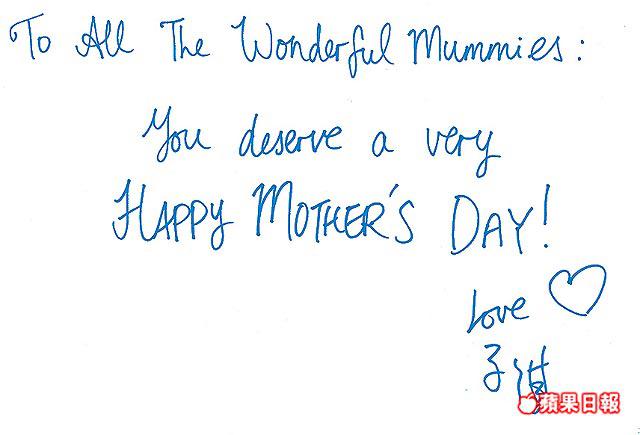 To All The Wonderful Mummies:
You deserve a very
HAPPY MOTHER'S DAY!
Love
子淇
蘋果日報